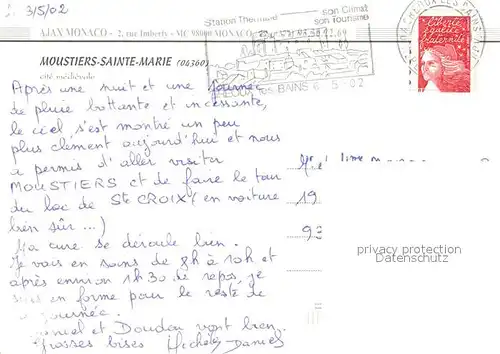 3/5/02
Station Thermale son Climat
son Tourisme
AJAX MONACO - 2, rue Imberty - MC 98000 MONACO
MOUSTIERS-SAINTE-MARIE (04360)
cité médiévale
BAINS 6 5 02
liberté
égalité
fraternité
Après une nuit et une journée
de pluie battante et incessante,
le ciel s'est montré un peu
plus clément aujourd'hui et nous
a permis d'aller visiter
MOUSTIERS et de faire le tour
du lac de Ste CROIX (en voiture
bien sûr...)
Ma cure se déroule bien.
Je vais en soins de 8h à 10h et
après environ 1h30 de repos, je
suis en forme pour le reste de
la journée.
Daniel et Doudou vont bien.
Grosses bises Michèle Daniel
19
93
privacy protection
Datenschutz